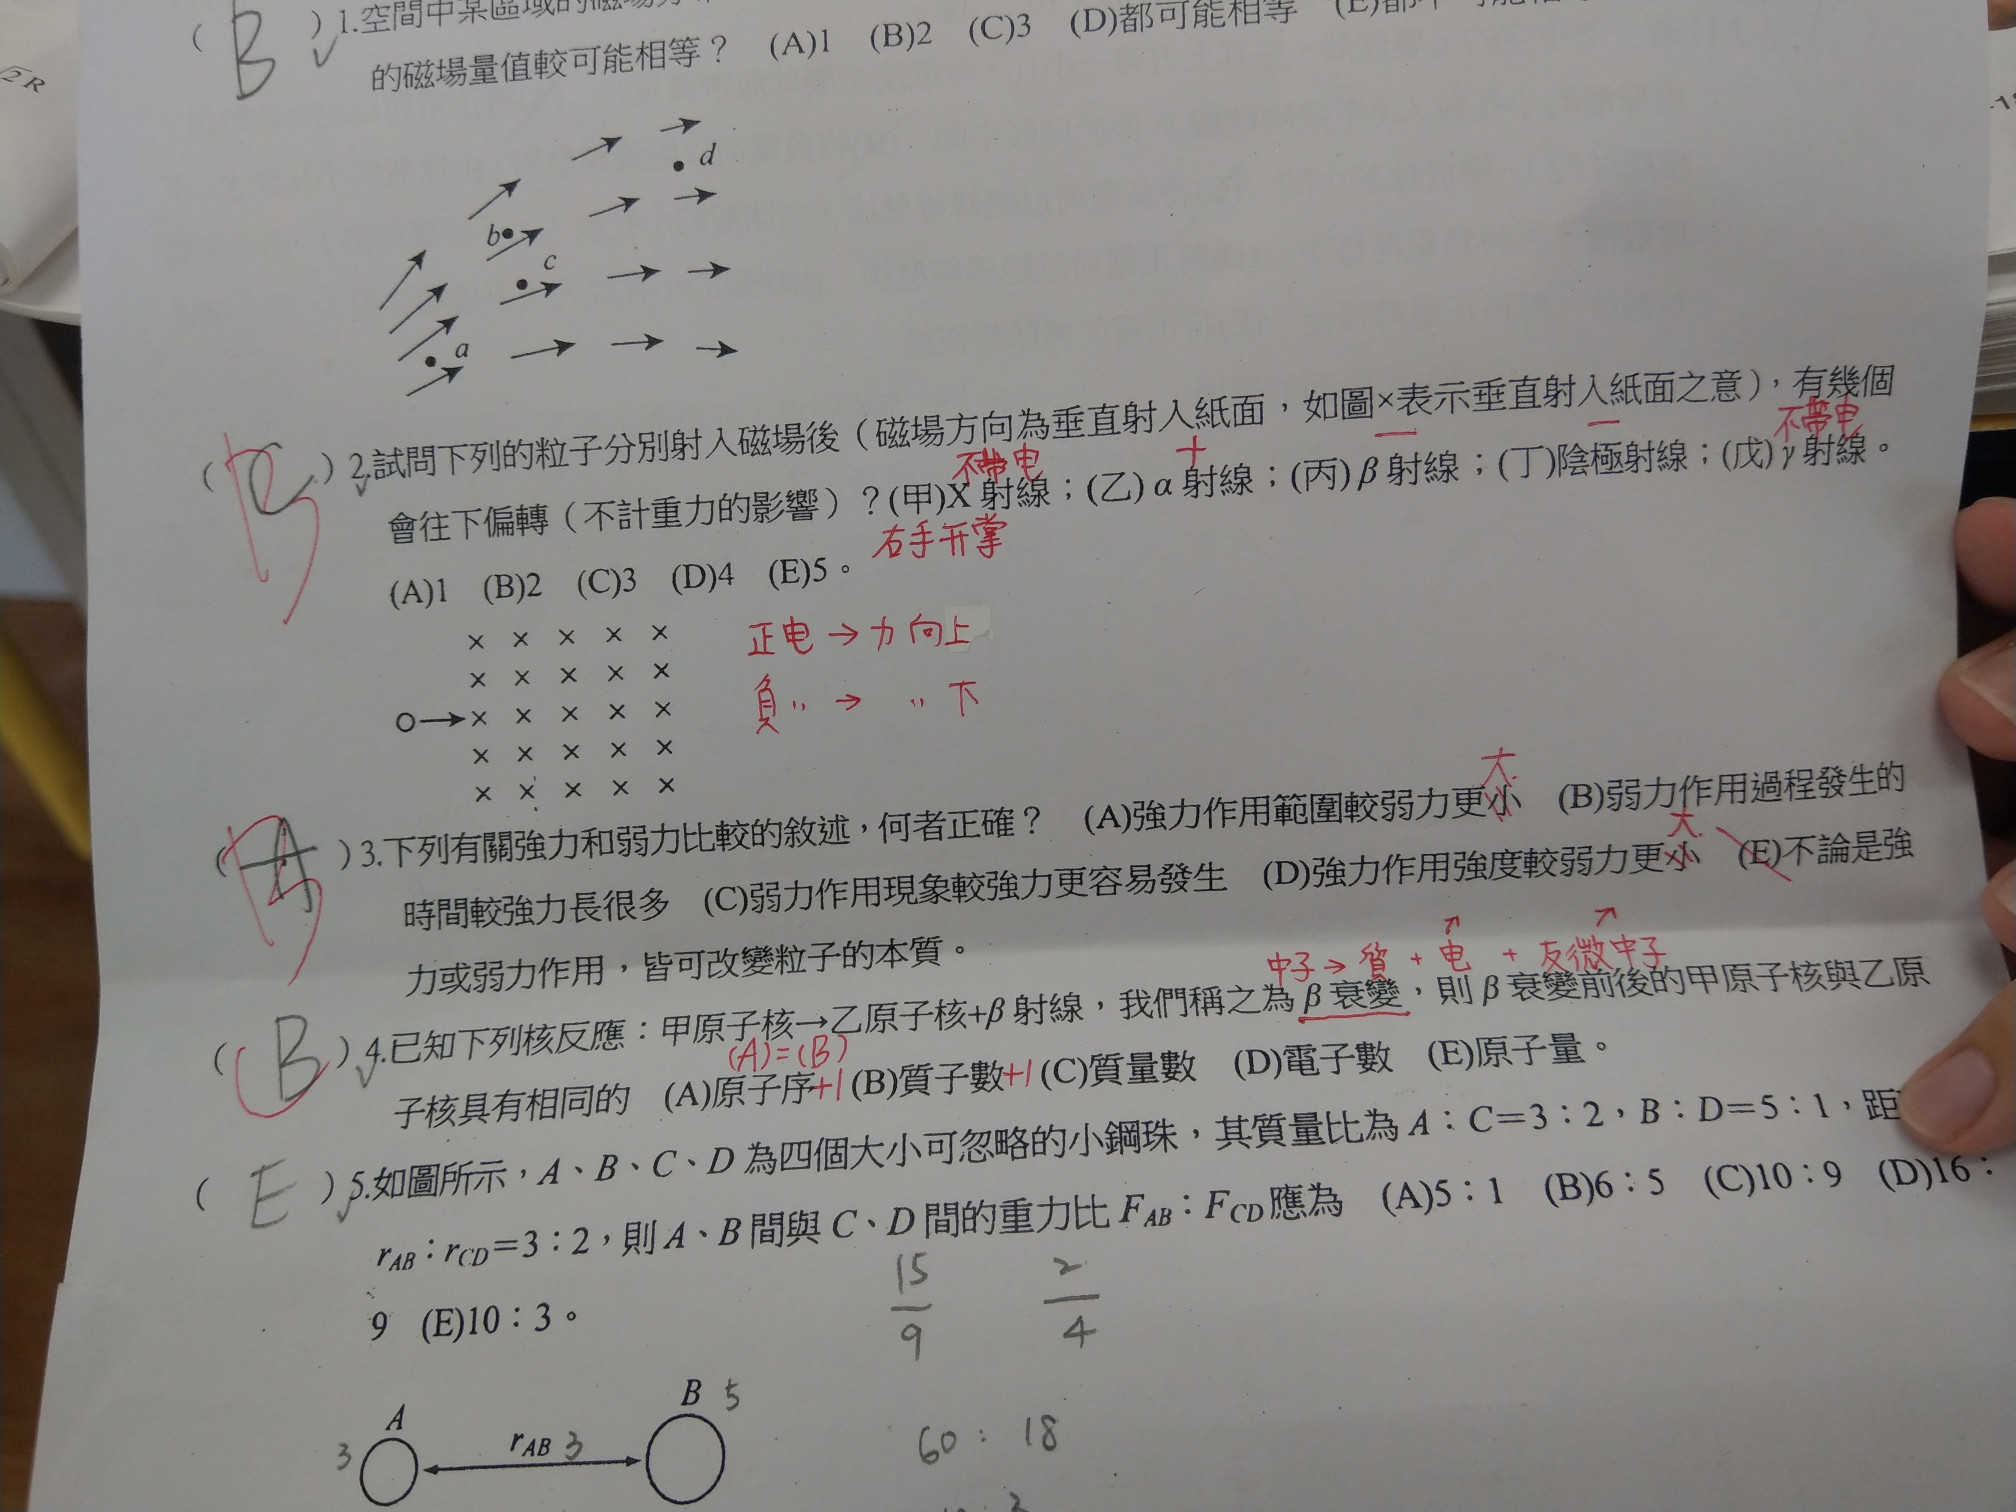 √2 R
( B ) 1.空間中某區域的磁場
的磁場量值較可能相等？ (A)1 (B)2 (C)3 (D)都可能相等
d
b
c
a
( C B ) 2.試問下列的粒子分別射入磁場後（磁場方向為垂直射入紙面，如圖×表示垂直射入紙面之意），有幾個
不帶电 + — — 不帶电
會往下偏轉（不計重力的影響）？(甲)X 射線；(乙) α 射線；(丙) β 射線；(丁)陰極射線；(戊) γ 射線。
右手开掌
(A)1 (B)2 (C)3 (D)4 (E)5。
× × × × ×
正电 → 力向上
× × × × ×
負〃 → 〃下
○→× × × × ×
× × × × ×
× × × × ×
大
( A B ) 3.下列有關強力和弱力比較的敘述，何者正確？ (A)強力作用範圍較弱力更小 (B)弱力作用過程發生的
大
時間較強力長很多 (C)弱力作用現象較強力更容易發生 (D)強力作用強度較弱力更小 (E)不論是強
力或弱力作用，皆可改變粒子的本質。
中子→質+电+反微中子
( B C ) 4.已知下列核反應：甲原子核→乙原子核+β 射線，我們稱之為 β 衰變，則 β 衰變前後的甲原子核與乙原
(A)=(B)
子核具有相同的 (A)原子序+1 (B)質子數+1 (C)質量數 (D)電子數 (E)原子量。
( E ) 5.如圖所示，A、B、C、D 為四個大小可忽略的小鋼珠，其質量比為 A：C=3：2，B：D=5：1，距
rAB：rCD=3：2，則 A、B 間與 C、D 間的重力比 FAB：FCD 應為 (A)5：1 (B)6：5 (C)10：9 (D)16：
9 (E)10：3。
15/9 2/4
A B 5
3 rAB 3
60 : 18